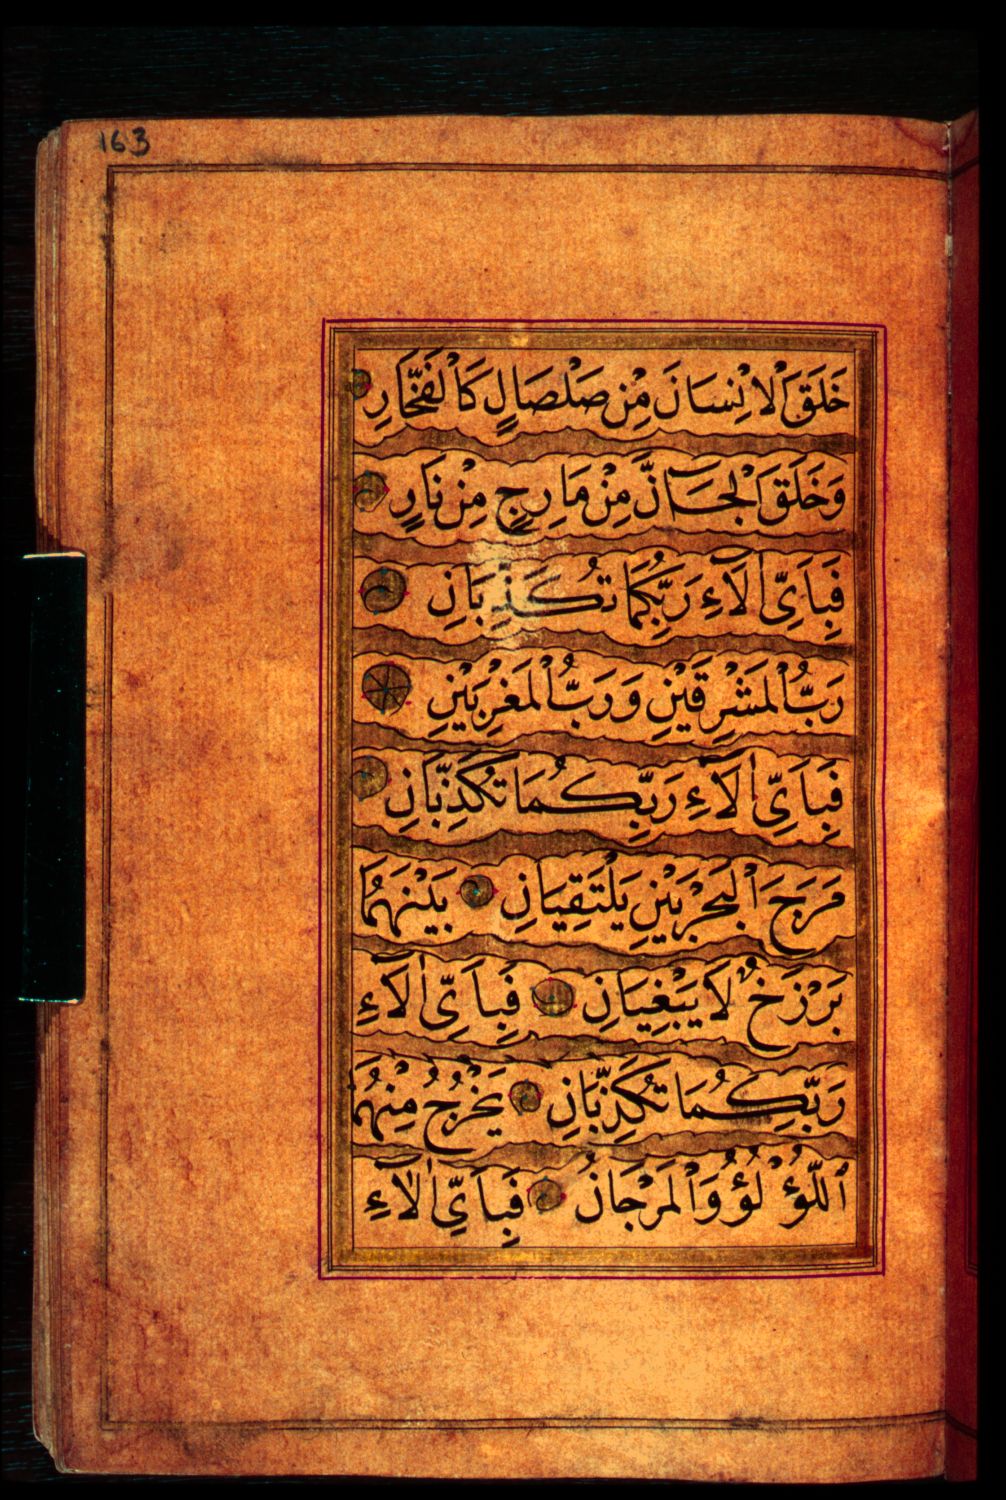 163
خَلَقَ ٱلْاِنْسَانَ مِنْ صَلْصَالٍ كَٱلْفَخَّارِ
وَخَلَقَ ٱلْجَآنَّ مِنْ مَارِجٍ مِنْ نَارٍ
فَبِاَىِّ اٰلَآءِ رَبِّكُمَا تُكَذِّبَانِ
رَبُّ ٱلْمَشْرِقَيْنِ وَرَبُّ ٱلْمَغْرِبَيْنِ
فَبِاَىِّ اٰلَآءِ رَبِّكُمَا تُكَذِّبَانِ
مَرَجَ ٱلْبَحْرَيْنِ يَلْتَقِيَانِ بَيْنَهُمَا
بَرْزَخٌ لَا يَبْغِيَانِ فَبِاَىِّ اٰلَآءِ
رَبِّكُمَا تُكَذِّبَانِ يَخْرُجُ مِنْهُمَا
ٱللُّؤْلُؤُ وَٱلْمَرْجَانُ فَبِاَىِّ اٰلَآءِ